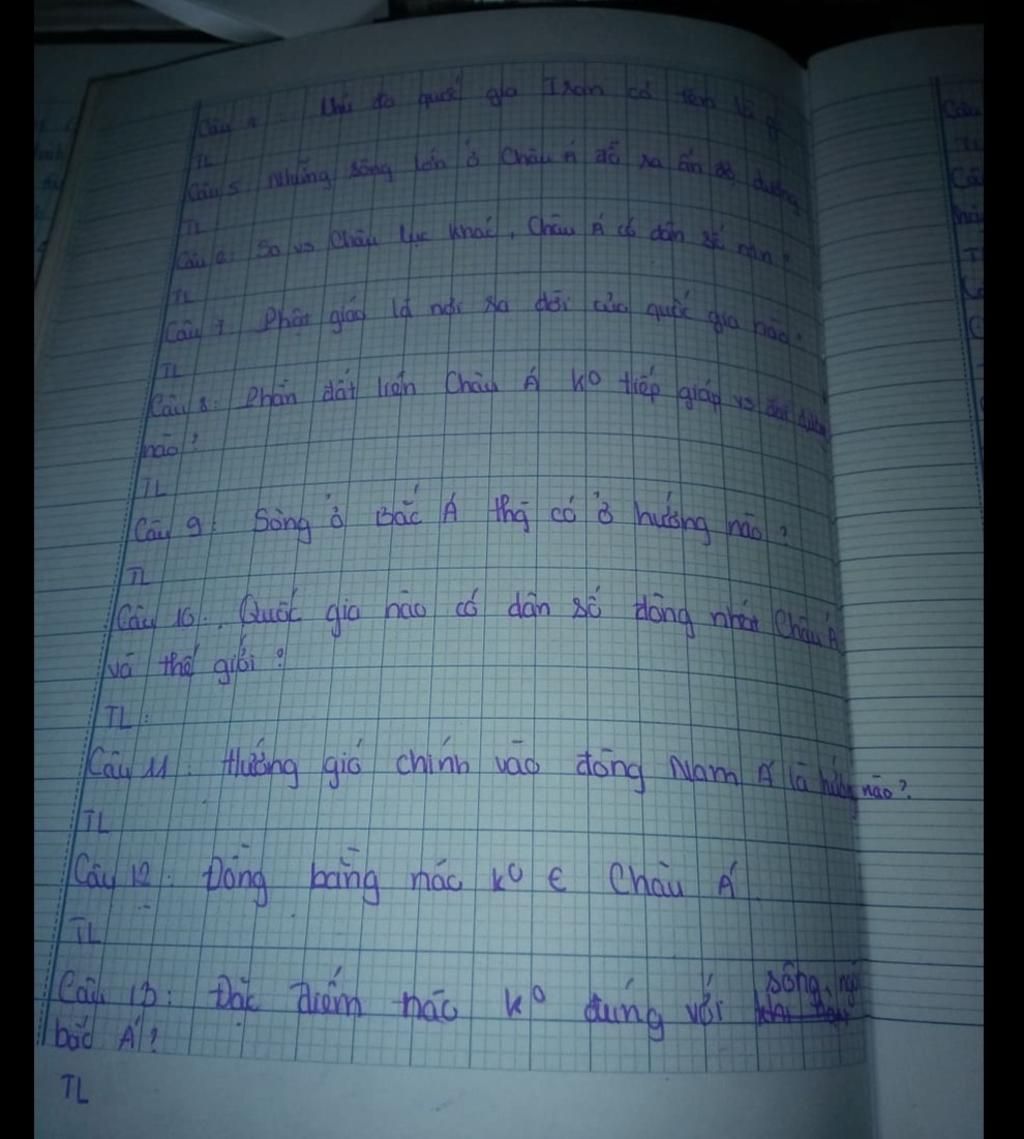 Câu 4: Thủ đô quốc gia Iran có tên là gì
TL
Câu 5: Những sông lớn ở Châu Á đổ ra ấn độ dương
TL
Câu 6: So vs Châu lục khác, Châu Á có dân số ntn?
TL
Câu 7: Phật giáo là nơi ra đời của quốc gia nào?
TL
Câu 8: Phần đất liền Châu Á ko tiếp giáp vs đại dương
nào?
TL
Câu 9: Sông ở Bắc Á thg có ở hướng nào?
TL
Câu 10: Quốc gia nào có dân số đông nhất Châu Á
và thế giới?
TL:
Câu 11: Hướng gió chính vào đông Nam Á là hướng nào?
TL
Câu 12: Đồng bằng nào ko ∈ Châu Á
TL
Câu 13: Đặc điểm nào ko đúng với sông ngòi
bắc Á?
TL
Câu
TL